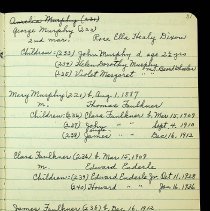 31
George Murphy (221)
2nd mar. Rose Ella Healy Dixon
Children: (233) John Murphy d age 2½ yrs
(234) Helen Dorothy Murphy
(235) Violet Margaret " "
Mary Murphy (222) b. Aug 1, 1887
m. Thomas Faulkner
Children: (236) Clare Faulkner b Mar 15, 1909
(237) John " b Sept 4, 1910
(238) James " " Dec 16, 1912
Clare Faulkner (236) b Mar 15, 1909
m. Edward Enderle
Children: (239) Edward Enderle Jr. Oct 11, 1928
(240) Howard " Jan 16, 1936
James Faulkner (238) b. Dec 16, 1912